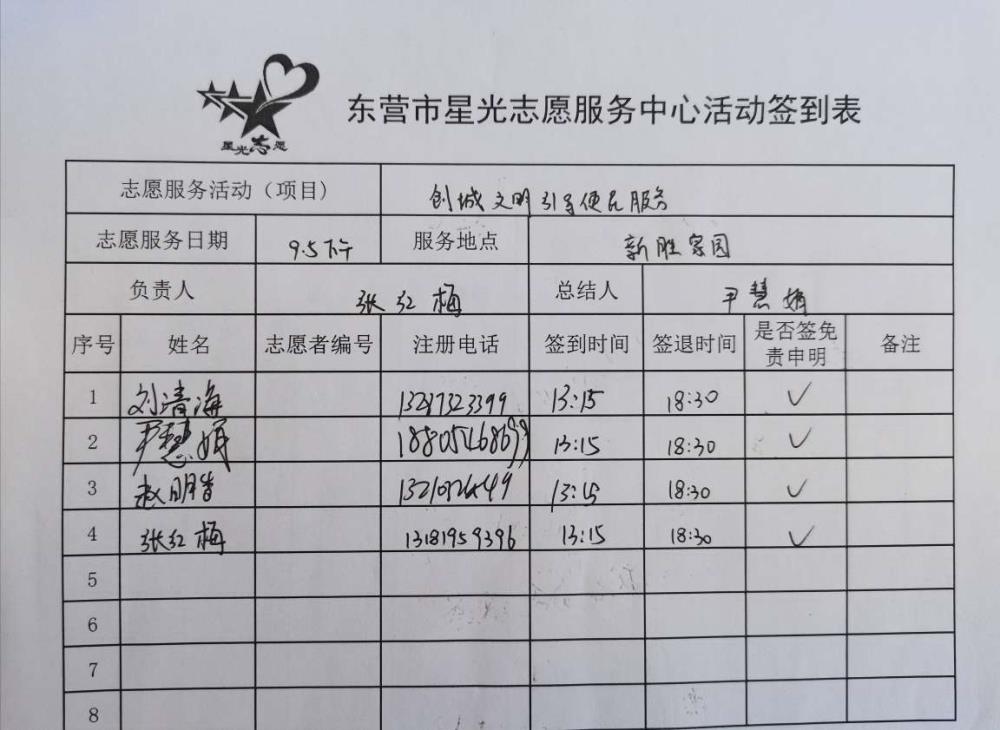 星光志愿
东营市星光志愿服务中心活动签到表
志愿服务活动（项目） 创城文明引导便民服务
志愿服务日期 9.5下午 服务地点 新胜家园
负责人 张红梅 总结人 尹慧娟
序号 姓名 志愿者编号 注册电话 签到时间 签退时间 是否签免责申明 备注
1 刘清海 13217323399 13:15 18:30 ✓
2 尹慧娟 13:15 18:30 ✓
3 赵明 13:15 18:30 ✓
4 张红梅 13181959396 13:15 18:30 ✓
5
6
7
8